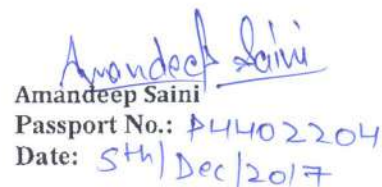 Amandeep Saini
Amandeep Saini
Passport No.: P4402204
Date: 5th/Dec/2017